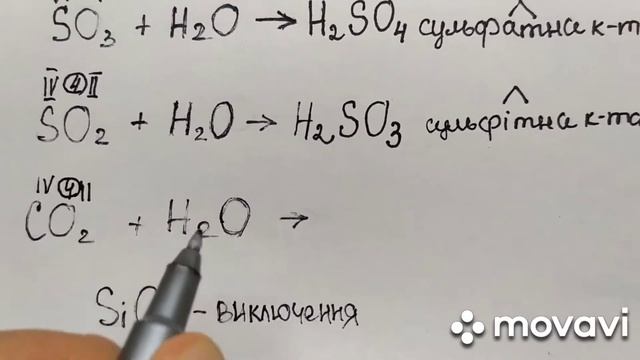 SO₃ + H₂O → H₂SO₄ сульфатна к-та
IV ④ II
SO₂ + H₂O → H₂SO₃ сульфітна к-та
IV ④ II
CO₂ + H₂O →
SiO - виключення
movavi